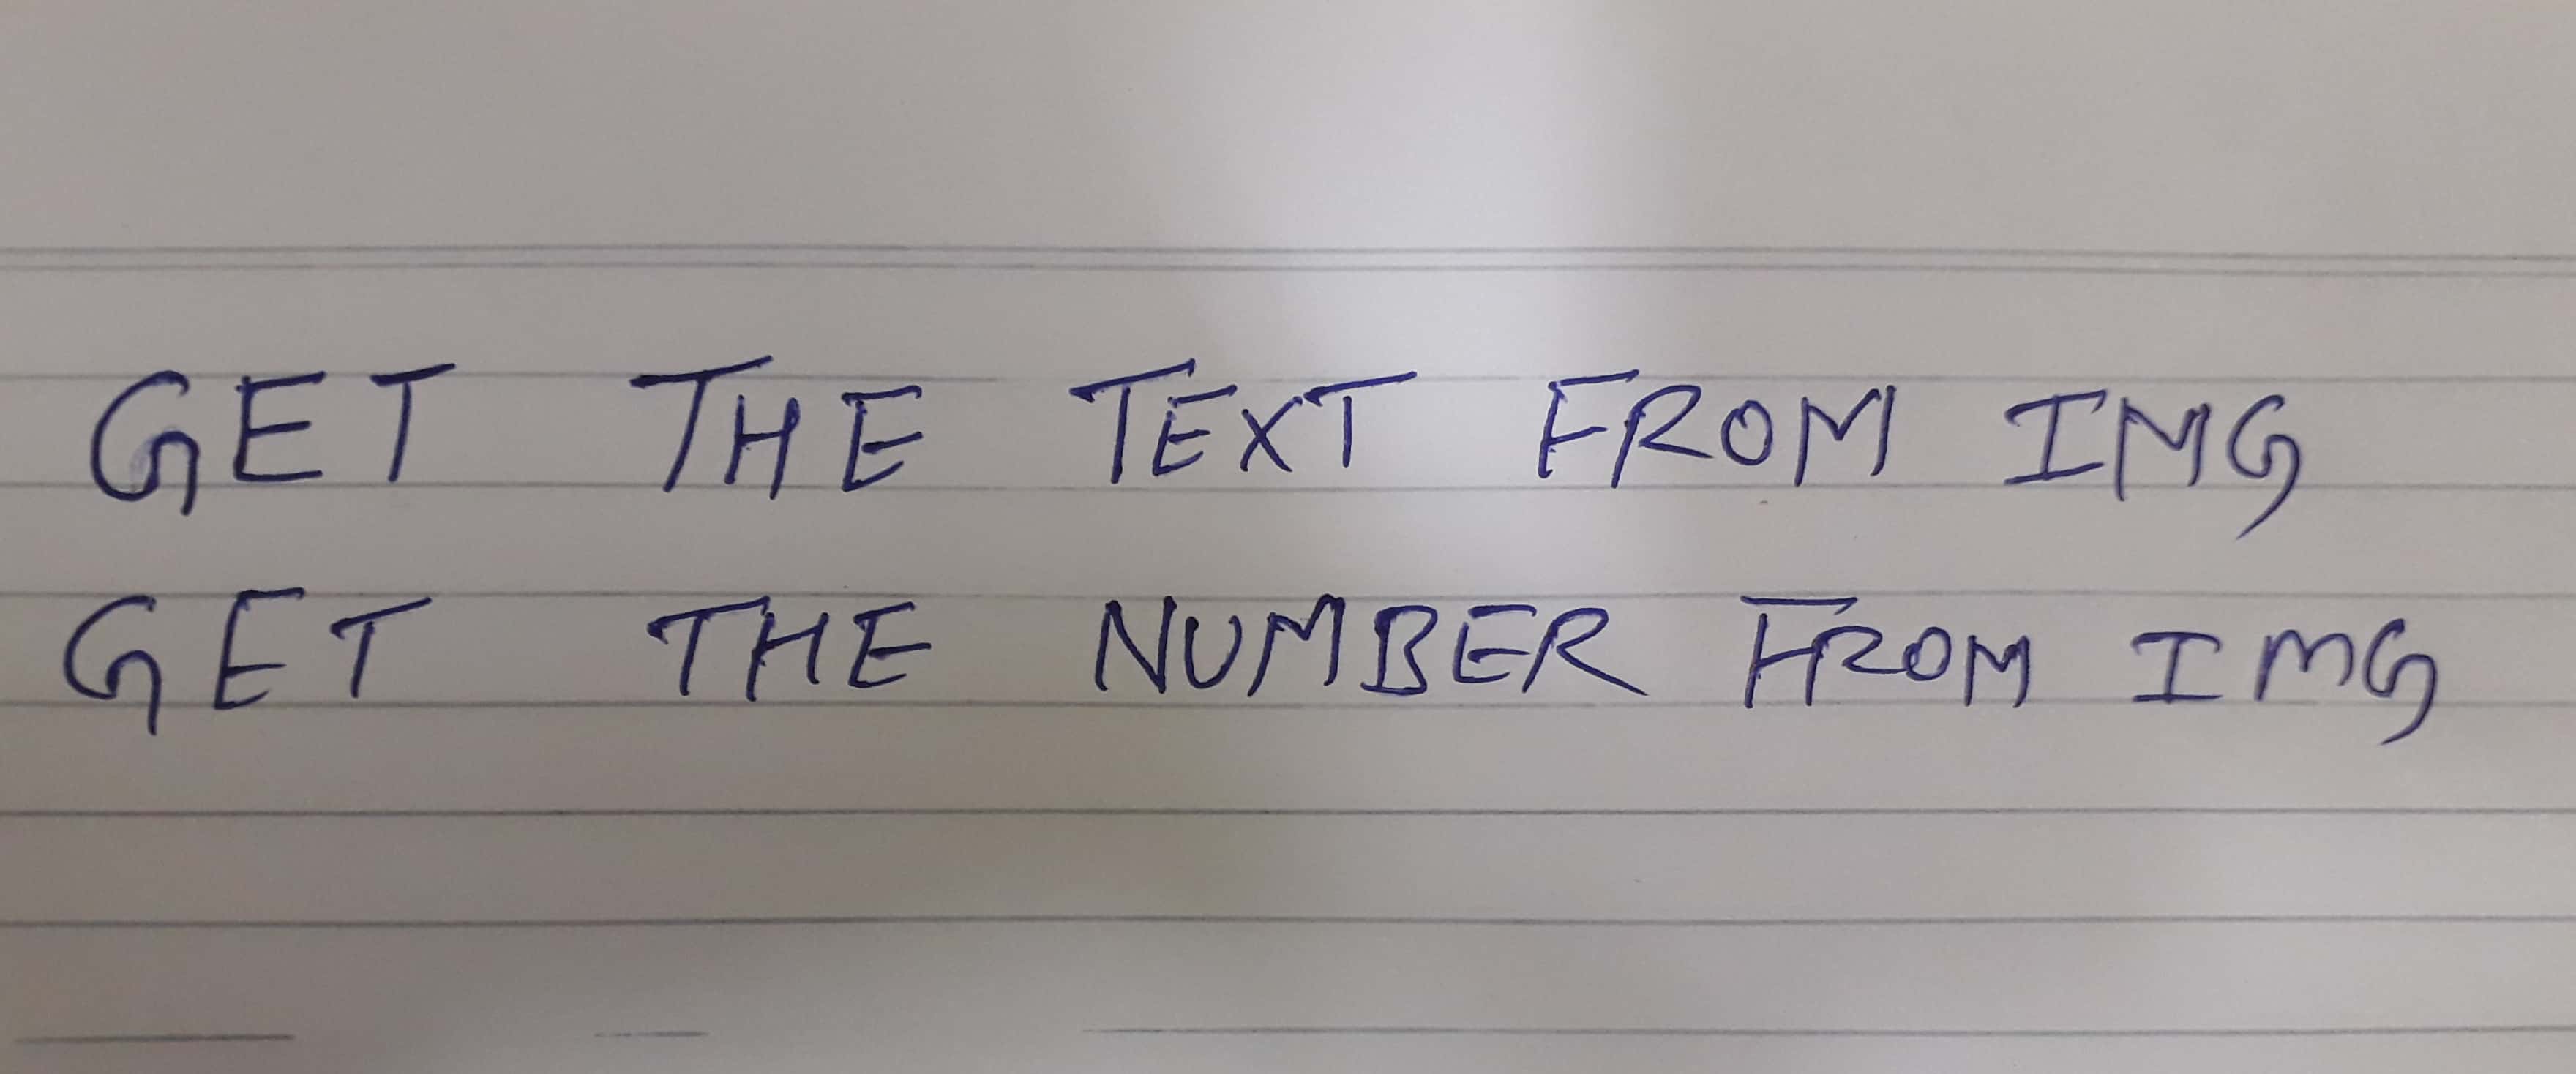 GET THE TEXT FROM IMG
GET THE NUMBER FROM IMG